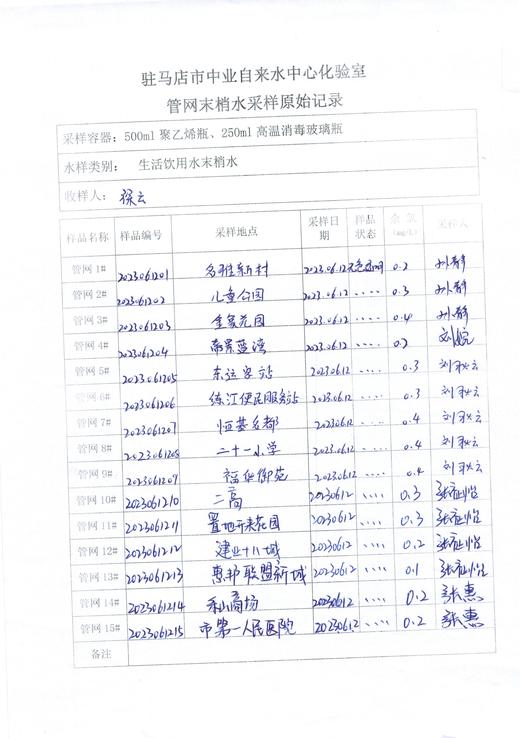 驻马店市中业自来水中心化验室
管网末梢水采样原始记录
采样容器：500ml 聚乙烯瓶、250ml 高温消毒玻璃瓶
水样类别： 生活饮用水末梢水
收样人：徐云
样品名称 样品编号 采样地点 采样日期 样品状态 余氯(mg/L) 采样人
管网 1# 2023061201 新村 2023.06.12 无色透明 0.2
管网 2# 2023061202 儿童公园 2023.06.12 .... 0.3
管网 3# 2023061203 金象花园 2023.06.12 .... 0.4
管网 4# 2023061204 蓝湾 2023.06.12 .... 0.2 刘婉
管网 5# 2023061205 东运客站 2023.06.12 .... 0.3
管网 6# 2023061206 练江便民服务站 2023.06.12 .... 0.3
管网 7# 2023061207 恒基名都 2023.06.12 .... 0.4
管网 8# 2023061208 二十一小学 2023.06.12 .... 0.4
管网 9# 2023061209 福华御苑 2023.06.12 .... 0.4
管网 10# 2023061210 二高 20230612 .... 0.3
管网 11# 2023061211 置地开来花园 20230612 .... 0.3
管网 12# 2023061212 建业十八城 20230612 .... 0.2
管网 13# 2023061213 惠邦联盟新城 20230612 .... 0.1
管网 14# 2023061214 乐山商场 20230612 .... 0.2 张惠
管网 15# 2023061215 市第一人民医院 20230612 .... 0.2 张惠
备注